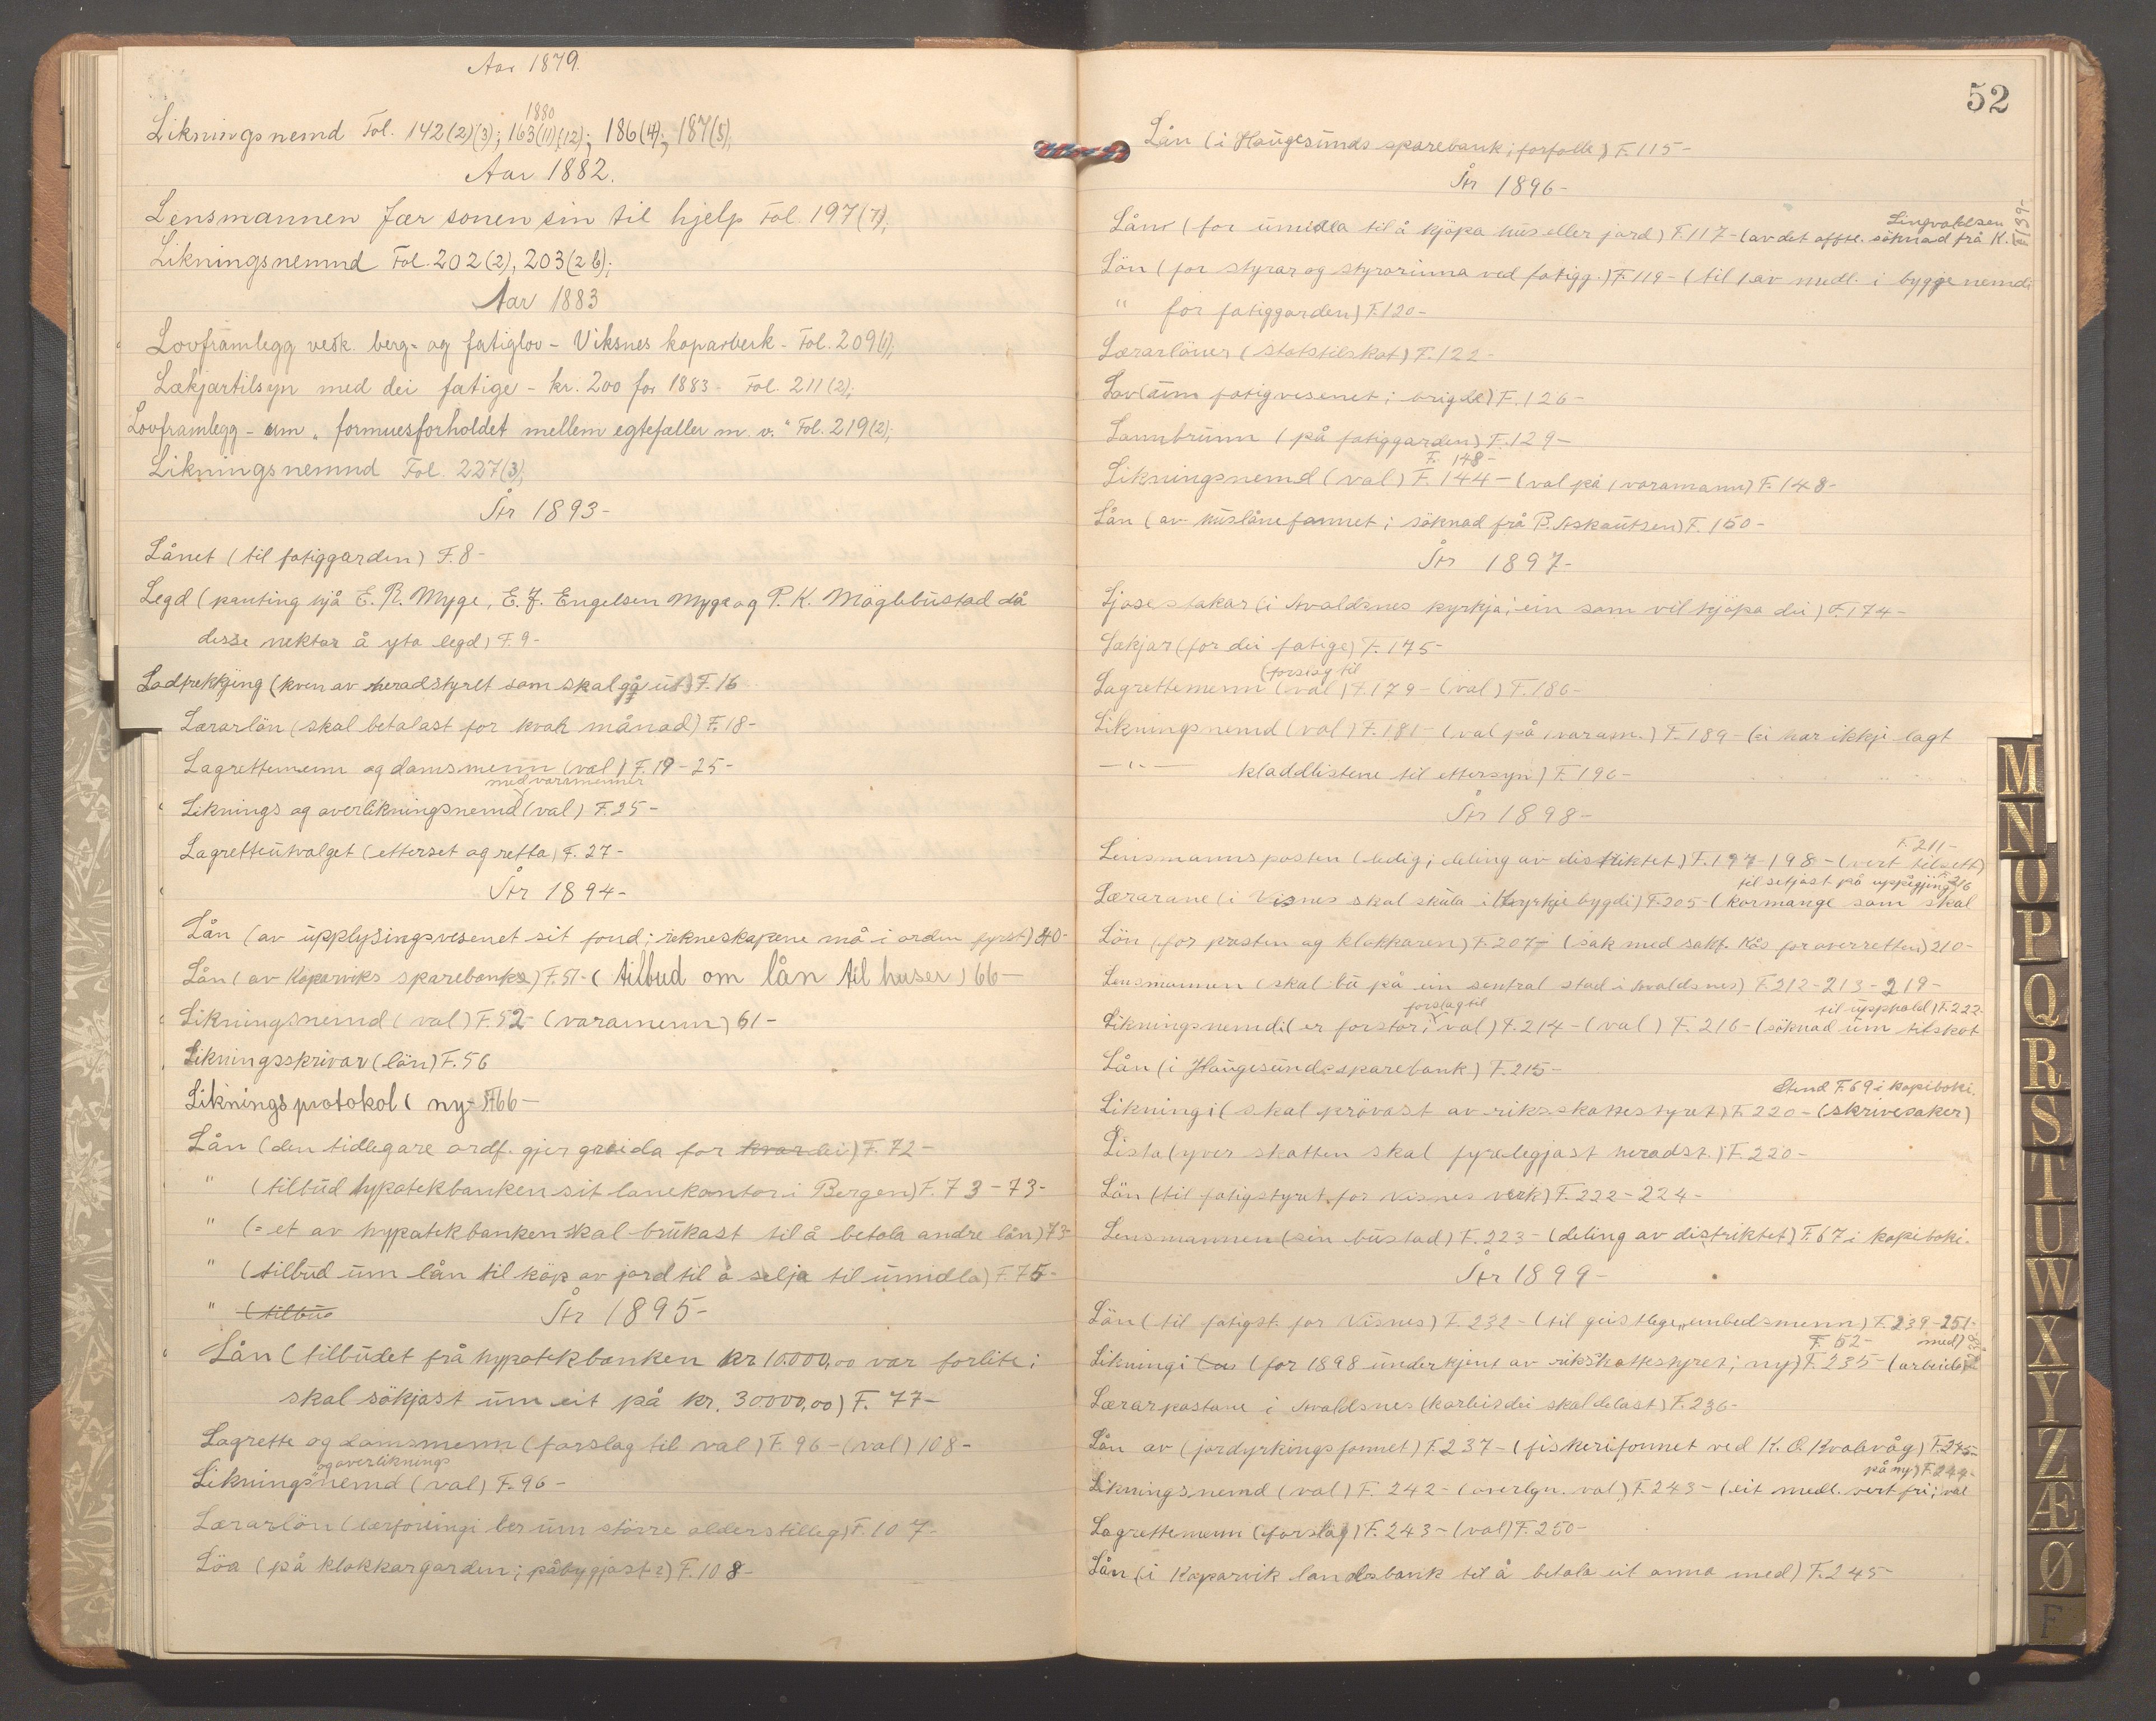 Aar 1879.
1880
Likningsnemd Fol. 142(2)(3); 163(11)(12); 186(4); 187(5);
Aar 1882.
Lensmannen fær sonen sin til hjelp Fol. 197(7);
Likningsnemnd Fol. 202(2), 203(2b);
Aar 1883
Lovframlegg vedk. berg- og fatiglov - Viksnes koparverk - Fol. 209(1);
Lækjartilsyn med dei fatige - kr. 200 for 1883 - Fol. 211(2);
Lovframlegg - um "formuesforholdet mellem egtefæller m. v." Fol. 219(2);
Likningsnemnd Fol. 227(3);
År 1893-
Lånet (til fatiggarden) F.8-
Legd (panting hjå E. R. Myge, E. J. Engelsen Myge og P. K. Möglebustad då
desse nektar å yta legd) F.9-
Lodtrekkjing (kven av heradstyret som skal gå ut) F.16
Lærarlön (skal betalast for kvar månad) F.18-
Lagrettemenn og domsmenn (val) F.19-25-
med varamenner
Liknings og overlikningsnemd (val) F.25-
Lagretteutvalget (etterset og retta) F.27-
År 1894-
Lån (av upplysingsvesenet sit fond; rekneskapene må i orden fyrst) 40-
Lån (av Koparviks sparebank) F.51-(tilbud om lån til huser) 66-
Likningsnemd (val) F.52-(varamenn) 61-
Likningsskrivar (lön) F.56
Likningsprotokol (ny- F66-
Lån (den tidlegare ordf. gjer greida for kvar dei) F.72-
" (tilbud hypotekbanken sit lånekontor i Bergen) F.73-73-
" (= et av hypotekbanken skal brukast til å betala andre lån) 73-
" (tilbud um lån til köp av jord til å selja til umidla) F.75-
" (tilbud
År 1895-
Lån (tilbudet frå hypotekbanken kr 10.000,00 var forlite;
skal sökjast um eit på kr. 30000,00) F. 77-
Lagrette og domsmenn (forslag til val) F.96-(val) 108-
og overliknings
Likningsnemd (val) F.96-
Lærarlön (lærforeningi ber um större alderstillegg) F.107-
Löa (på klokkargarden; påbygjast?) F.108-
52
Lån (i Haugesunds sparebank; forfalle) F.115-
År 1896-
Lån (for umidla til å kjöpa hus eller jord) F.117-(av det offtl. söknad frå K.
Lingvaldsen F139-
Lön (for styrar og styrarinna ved fatigg.) F.119-(til 1 av medl. i byggjenemdi
" for fatiggarden) F.120-
Lærarlöner (statstilskot) F.122-
Lov (um fatigvesenet; brigde) F.126-
Lannbrunn (på fatiggarden) F.129-
F. 148-
Likningsnemd (val) F.144-(val på 1 varamann) F.148-
Lån (av huslånefonnet; söknad frå B. Askautsen) F.150-
År 1897-
Ljosestakar (i Avaldsnes kyrkja; ein som vil kjöpa dei) F.174-
Lækjar (for dei fatige) F.175-
(forslag til
Lagrettemenn (val) F.179-(val) F.186-
Likningsnemd (val) F.181-(val på 1 varam.) F.189-(ei har ikkji lagt
-"- kladdlistene til ettersyn) F.196-
År 1898-
F.211-
Lensmannsposten (ledig; deling av distriktet) F.197-198-(vert tilsett)
til setjast på uppsigjing F.216
Lærarane (i Visnes skal skula i Kyrkjebygdi) F.205-(kormange som skal
Lön (for presten og klokkaren) F.207-(sak med sakf. Kås for overretten) 210-
Lensmannen (skal bu på ein sentral stad i Avaldsnes) F.212-213-219-
forslag til
til upphald) F.222-
Likningsnemdi (er forstor; val) F.214-(val) F.216-(söknad um tilskot
Lån (i Haugesunds sparebank) F.215-
Stend F.69 i kopiboki.
Likningi (skal prövast av riksskattestyret) F.220-(skrivesaker)
Lista (yver skatten skal fyrelegjast heradst.) F.220-
Lön (til fatigstyret for Visnes verk) F.222-224-
Lensmannen (sin bustad) F.223-(deling av distriktet) F.67 i kopiboki.
År 1899-
Lön (til fatigst. for Visnes) F.232-(til geistlege embedsmenn) F.239-251-
F.52- med)
Likningi (for 1898 underkjent av riksskattestyret; ny) F.235-(arbeidet
Lærarpostane i Avaldsnes (korleis dei skal delast) F.236-
Lån av (jordyrkingsfonnet) F.237-(fiskerifonnet ved K. O. Kvalavåg) F.245-
på ny) F.244-
Likningsnemd (val) F.242-(overlgn. val) F.243-(eit medl. vert fri; val
Lagrettemenn (forslag) F.243-(val) F.250-
Lån (i Koparvik landsbank til å betala eit anna med) F.245-
M
N
O
P
Q
R
S
T
U
W
X
Y
Z
Æ
Ø
F